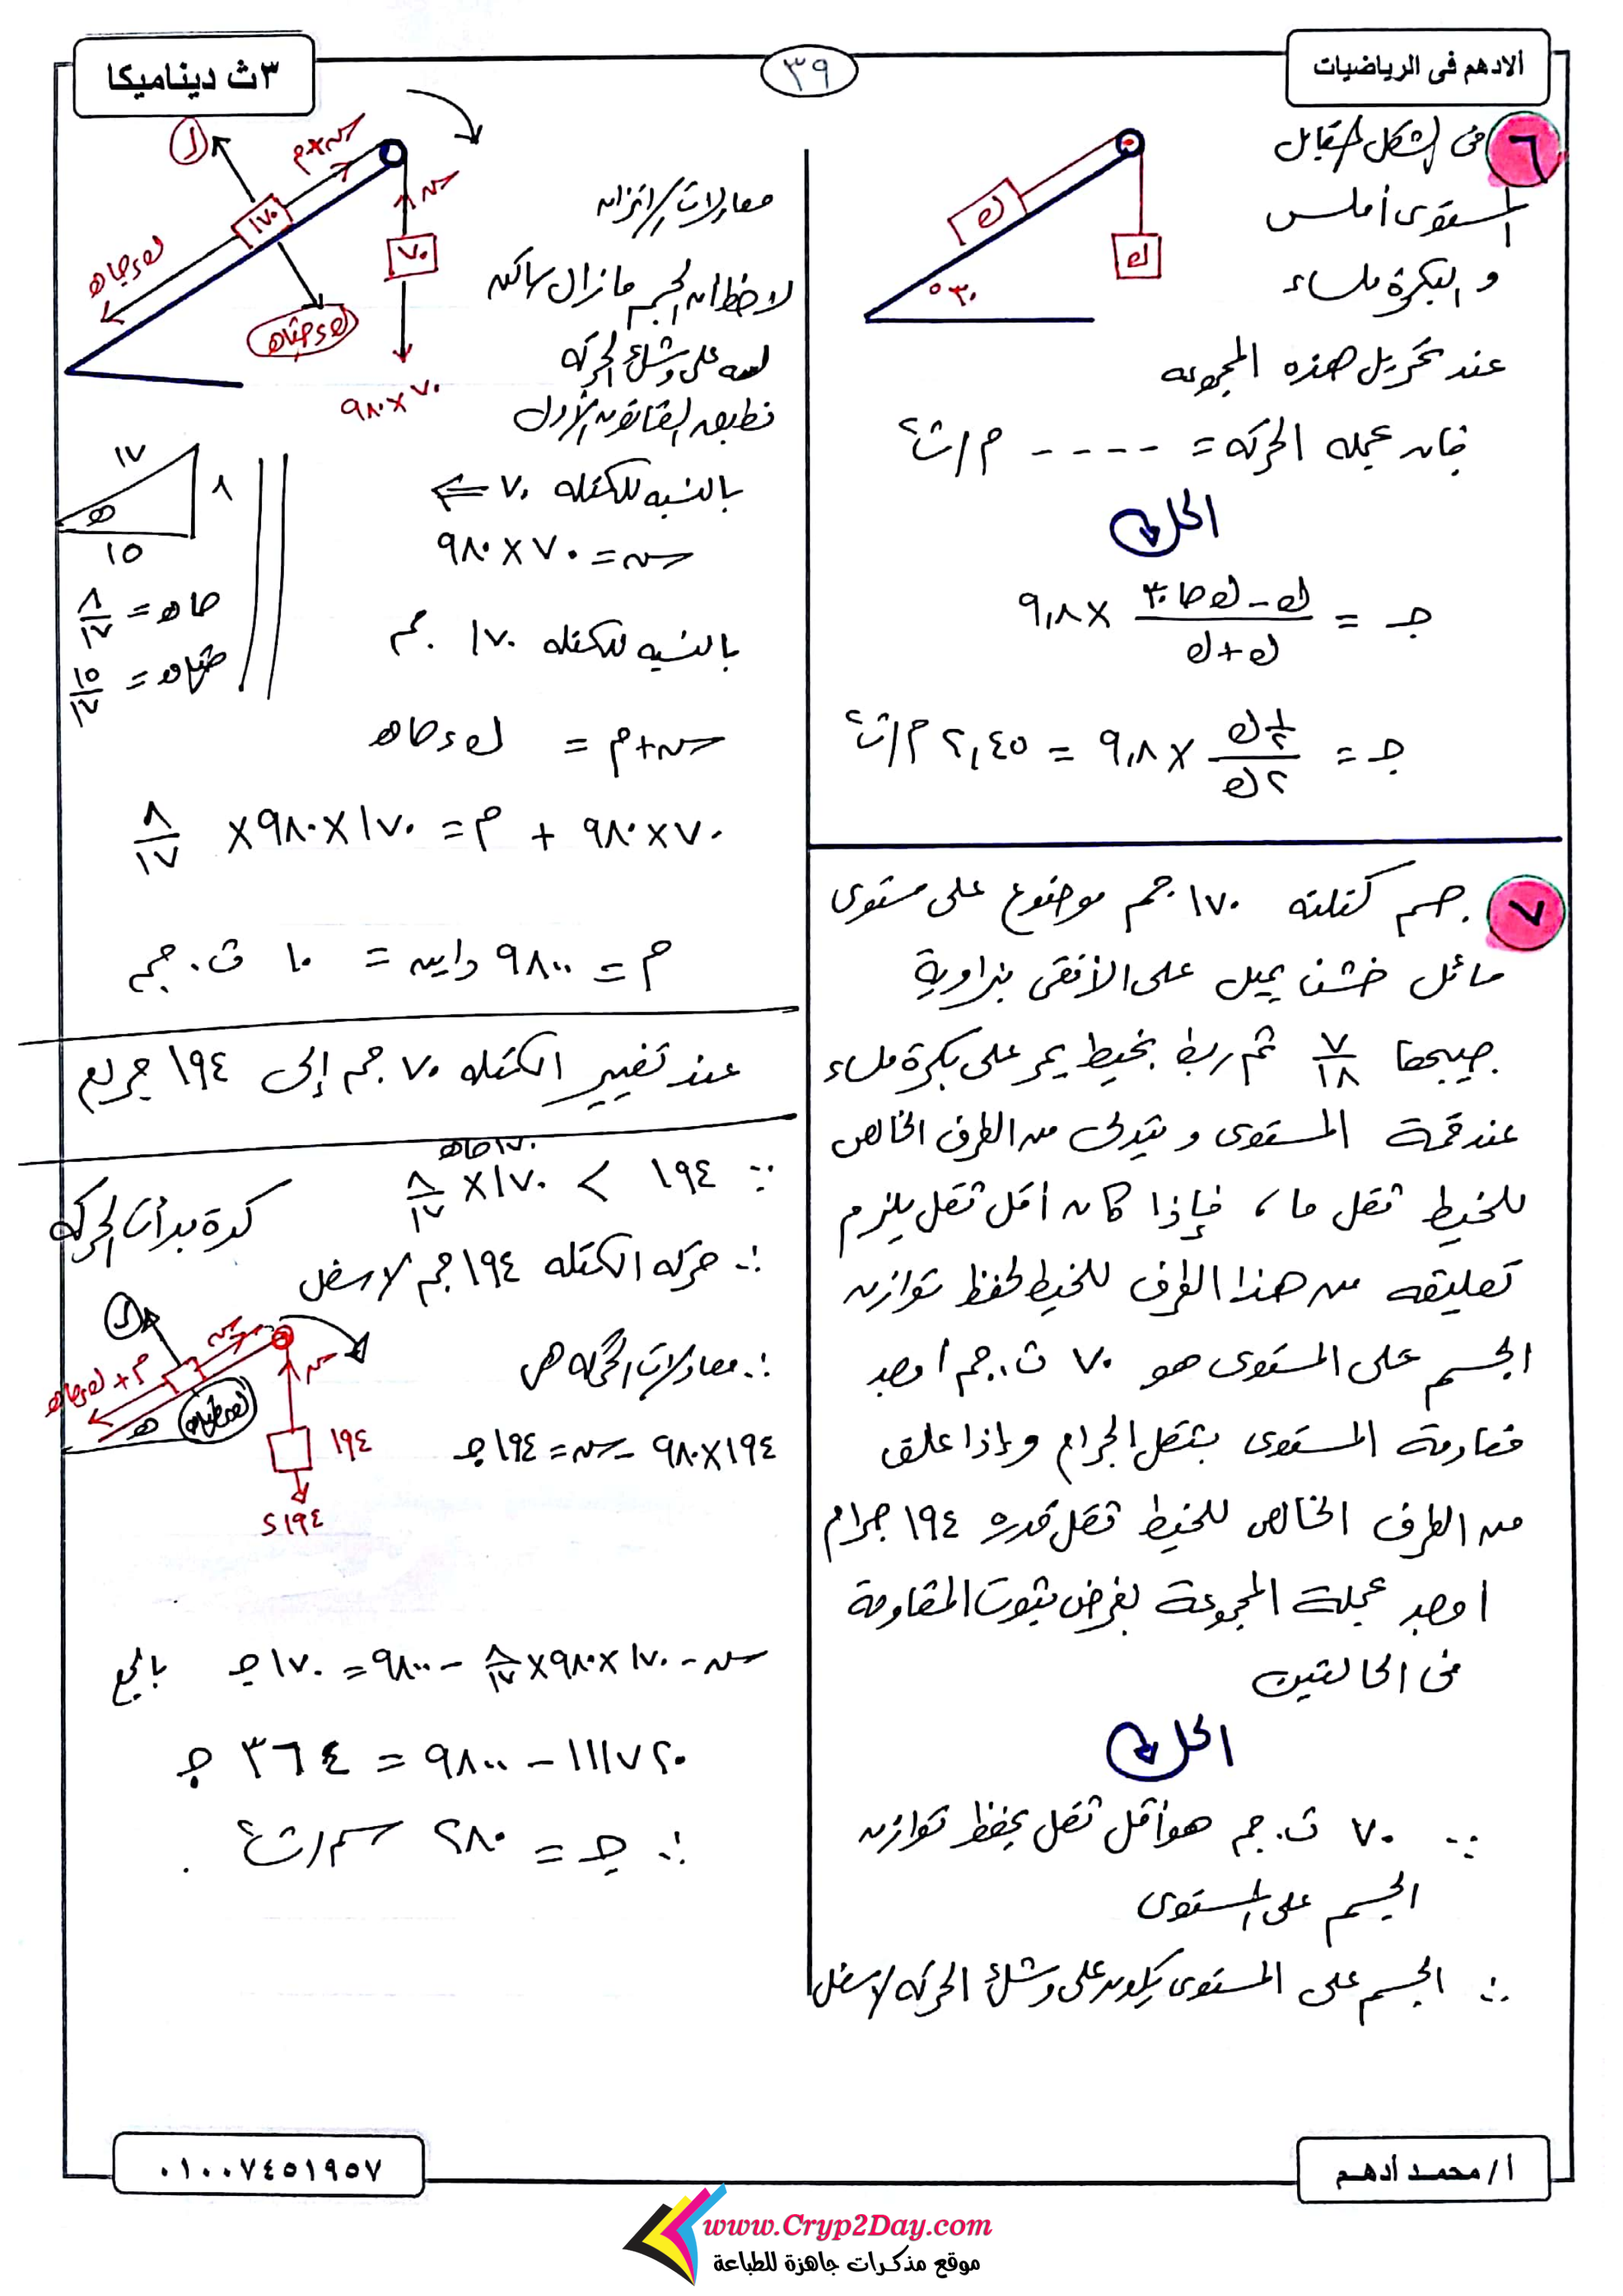 الادهم فى الرياضيات
٣٩
٣ث ديناميكا
٦ فى الشكل المقابل
المستوى أملس
و البكرة ملساء
ك
ك
٣٠°
عند تحريك هذه المجموعه
فإن عجله الحركه = - - - - م/ث²
الحل
جـ = (ك - ك جا ٣٠)/(ك + ك) × ٩,٨
جـ = (½ ك)/(٢ ك) × ٩,٨ = ٢,٤٥ م/ث²
٧ جسم كتلته ١٧٠ جم موضوع على مستوى
مائل خشن يميل على الأفقى بزاوية
جيبها ٧/١٨ ثم ربط بخيط يمر على بكرة ملساء
عند قمة المستوى و يتدلى من الطرف الخالص
للخيط ثقل ما، فإذا كان أقل ثقل يلزم
تعليقه من هذا الطرف للخيط لحفظ توازن
الجسم على المستوى هو ٧٠ ث.جم أوجد
مقاومة المستوى بثقل الجرام وإذا علق
من الطرف الخالص للخيط ثقل قدره ١٩٤ جرام
اوجد عجلة المجموعة بفرض ثبوت المقاومة
فى الحالتين
الحل
∵ ٧٠ ث.جم هو أقل ثقل يحفظ توازن
الجسم على المستوى
∴ الجسم على المستوى يكون على وشك الحركه لاسفل
ر
شـ + م
شـ
١٧٠
٧٠
ك ء جاهـ
ك ء جتاهـ
٧٠ × ٩٨٠
معادلات الاتزان
لاحظ أن الجسم مازال ساكن
لكنه على وشك الحركه
نطبق القانون الأول
بالنسبه للكتله ٧٠ ⇐
شـ = ٧٠ × ٩٨٠
١٧
٨
هـ
١٥
جاهـ = ٨/١٧
جتاهـ = ١٥/١٧
بالنسبه للكتله ١٧٠ جم
شـ + م = ك ء جاهـ
٧٠ × ٩٨٠ + م = ١٧٠ × ٩٨٠ × ٨/١٧
م = ٩٨٠٠ داين = ١٠ ث.جم
عند تغيير الكتله ٧٠ جم إلى ١٩٤ جرام
١٧٠ جاهـ
∵ ١٩٤ > ١٧٠ × ٨/١٧
كدة بدأت الحركه
∴ حركه الكتله ١٩٤ جم لاسفل
∴ معادلات الحركه هى
ر
شـ
شـ
م + ك ء جاهـ
هـ
١٩٤
١٩٤ء
١٩٤ × ٩٨٠ - شـ = ١٩٤ جـ
شـ - ١٧٠ × ٩٨٠ × ٨/١٧ - ٩٨٠٠ = ١٧٠ جـ بالجمع
١١١٧٢٠ - ٩٨٠٠ = ٣٦٤ جـ
∴ جـ = ٢٨٠ سم/ث²
أ/ محمد أدهم
٠١٠٠٧٤٥١٩٥٧
www.Cryp2Day.com
موقع مذكرات جاهزة للطباعة